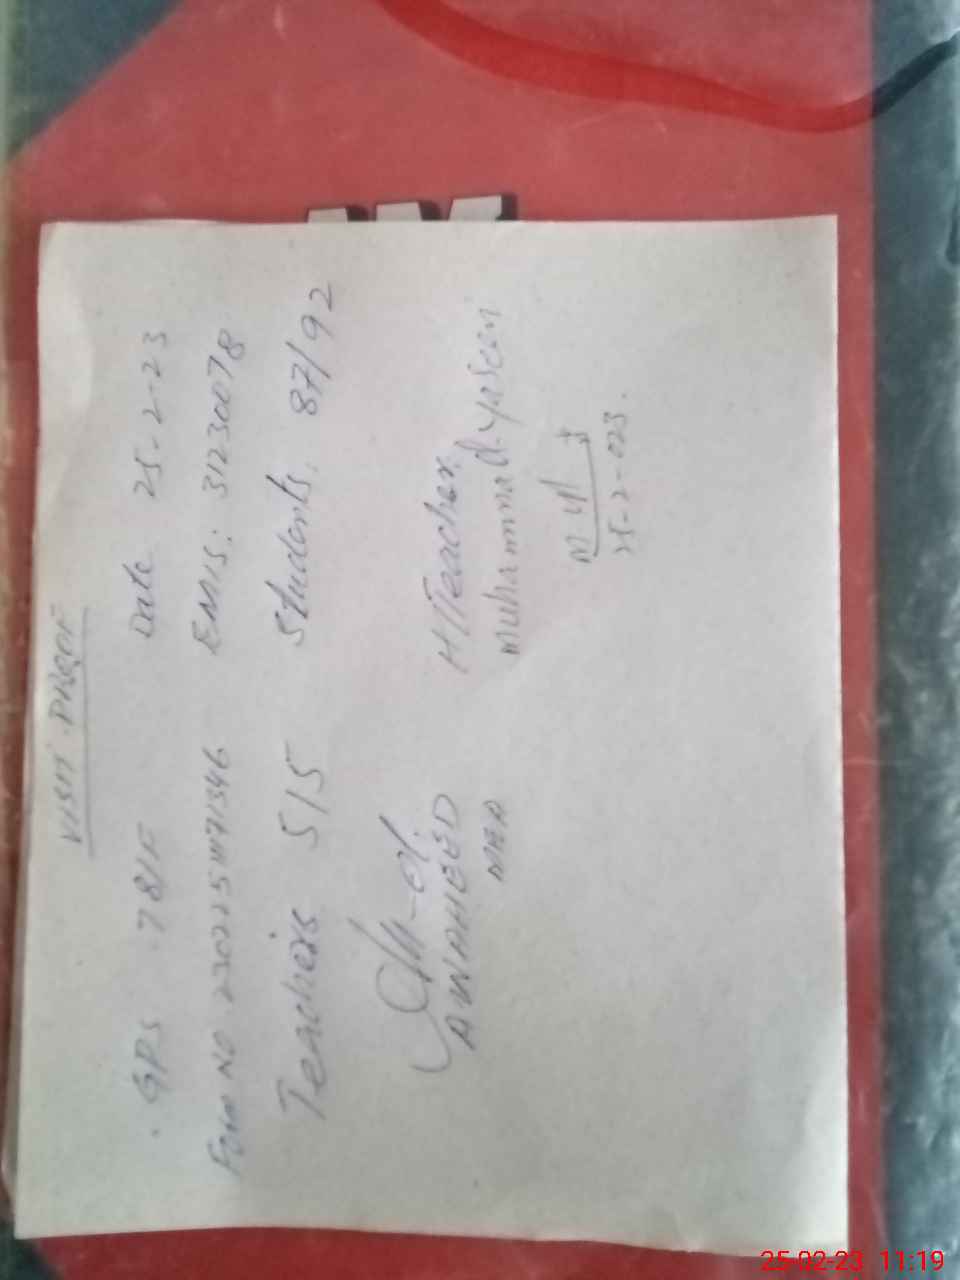 VISIT PROOF
GPS 78/F Date 25-2-23
Form No EMIS: 31230078
Teachers 5/5 Students: 87/92
H/Teacher
AWAHEED muhammad yaseen
MEA
25-2-023.
25-02-23 11:19